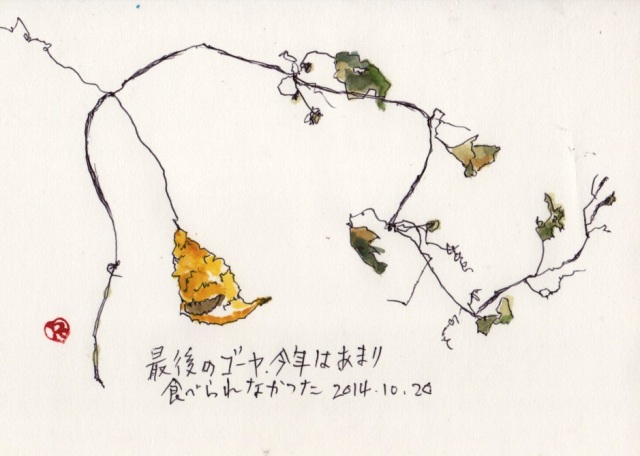 最後のゴーヤ.今年はあまり
食べられなかった 2014.10.20